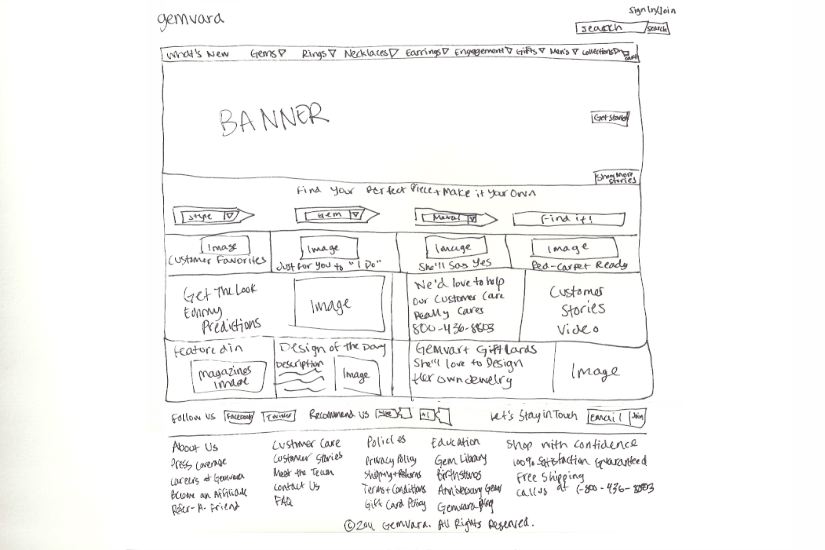 gemvara
Sign In/Join
search search
What's New Gems Rings Necklaces Earrings Engagement Gifts Men's Collections
BANNER
Get Started
Show More
Stories
Find Your Perfect Piece + Make it Your Own
Style Gem Metal Find it!
Image Image Image Image
Customer Favorites Just for You to "I Do" She'll Say Yes Red-Carpet Ready
Get The Look
Emmy
Predictions
Image
We'd love to help
Our Customer Care
Really Cares
800-436-8803
Customer
Stories
Video
Featured in
magazines
image
Design of the Day
Description
Image
Gemvara Gift Cards
She'll love to Design
Her own Jewelry
Image
Follow us Facebook Twitter Recommend us Like +1 Let's Stay in Touch email Join
About Us
Press Coverage
Careers at Gemvara
Become an Affiliate
Refer-A-Friend
Customer Care
Customer Stories
Meet the Team
Contact Us
FAQ
Policies
Privacy Policy
Shipping + Returns
Terms + Conditions
Gift Card Policy
Education
Gem Library
Birthstones
Anniversary Gems
Gemvara Blog
Shop with confidence
100% Satisfaction Guaranteed
Free Shipping
Call us at 1-800-436-8803
©2011 Gemvara. All Rights Reserved.